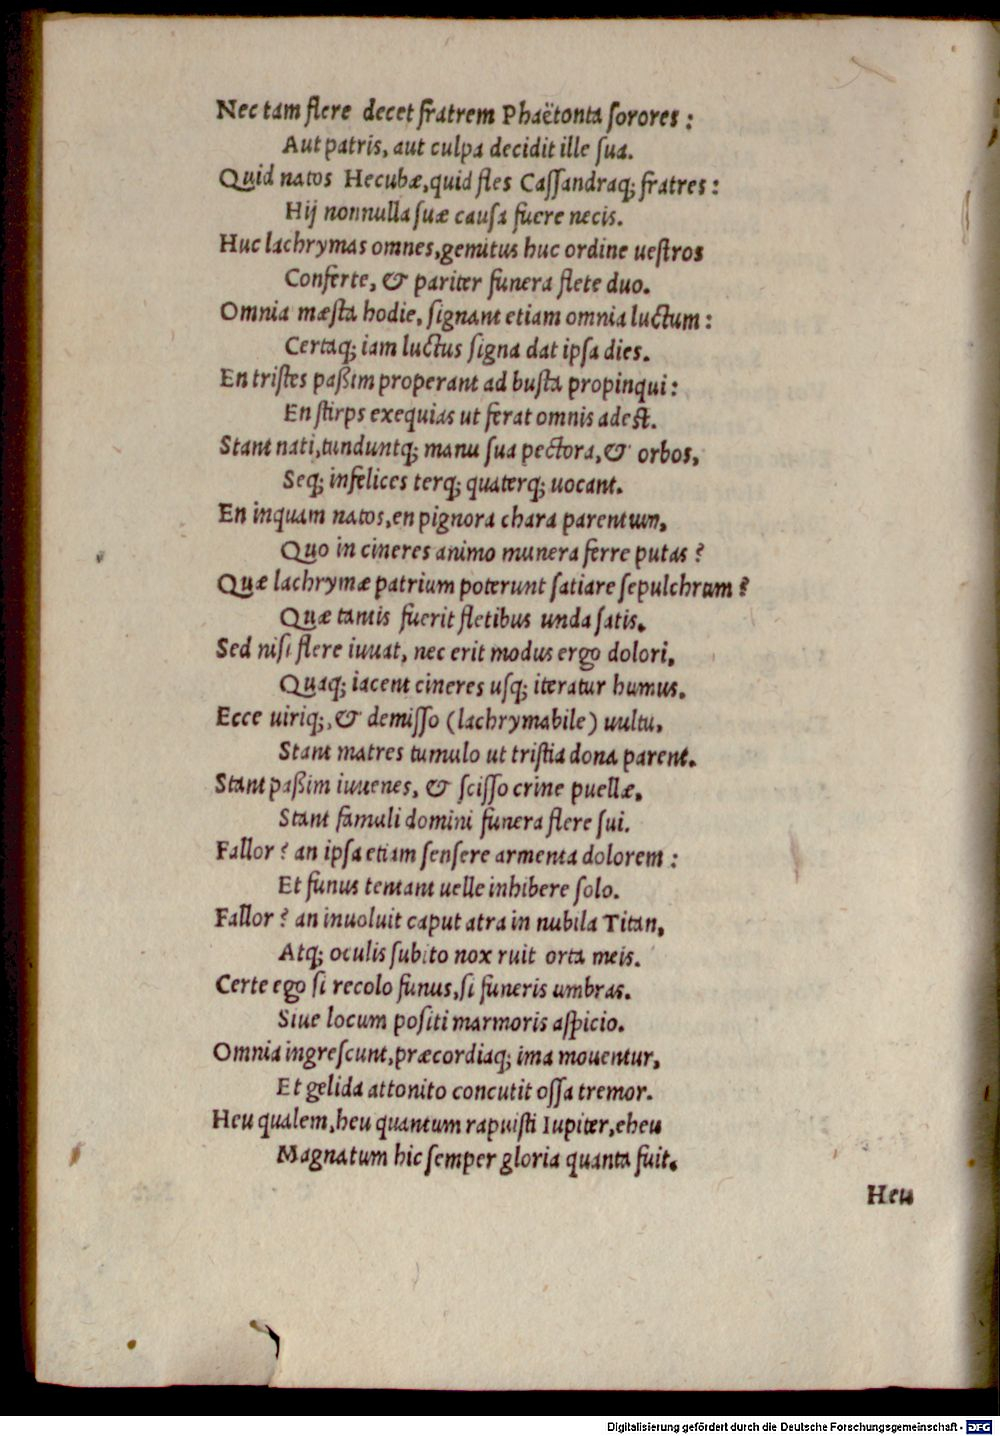 Nec tam flere decet fratrem Phaëtonta sorores:
Aut patris, aut culpa decidit ille sua.
Quid natos Hecubæ, quid fles Cassandraq; fratres:
Hij nonnulla suæ causa fuere necis.
Huc lachrymas omnes, gemitus huc ordine uestros
Conferte, & pariter funera flete duo.
Omnia mæsta hodie, signant etiam omnia luctum:
Certaq; iam luctus signa dat ipsa dies.
En tristes paßim properant ad busta propinqui:
En stirps exequias ut ferat omnis adest.
Stant nati, tunduntq; manu sua pectora, & orbos,
Seq; infelices terq; quaterq; uocant.
En inquam natos, en pignora chara parentum,
Quo in cineres animo munera ferre putas?
Quæ lachrymæ patrium poterunt satiare sepulchrum?
Quæ tantis fuerit fletibus unda satis.
Sed nisi flere iuuat, nec erit modus ergo dolori,
Quaq; iacent cineres usq; iteratur humus.
Ecce uiriq;, & demisso (lachrymabile) uultu,
Stant matres tumulo ut tristia dona parent.
Stant paßim iuuenes, & scisso crine puellæ,
Stant famuli domini funera flere sui.
Fallor? an ipsa etiam sensere armenta dolorem:
Et funus tentant uelle inhibere solo.
Fallor? an inuoluit caput atra in nubila Titan,
Atq; oculis subito nox ruit orta meis.
Certe ego si recolo funus, si funeris umbras.
Siue locum positi marmoris aspicio.
Omnia ingrescunt, præcordiaq; ima mouentur,
Et gelida attonito concutit ossa tremor.
Heu qualem, heu quantum rapuisti Iupiter, eheu
Magnatum hic semper gloria quanta fuit.
Heu
Digitalisierung gefördert durch die Deutsche Forschungsgemeinschaft - DFG